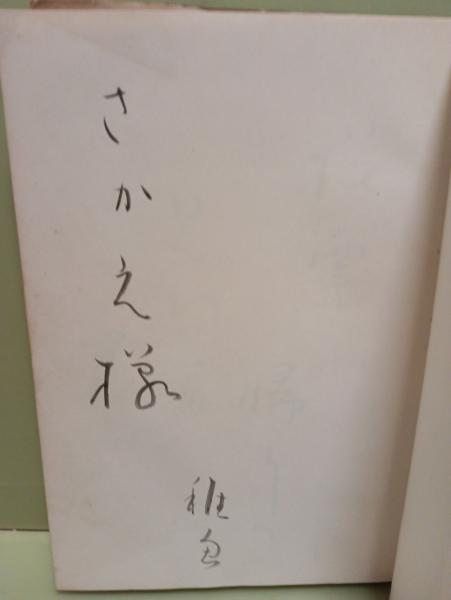 さかえ様
稚魚